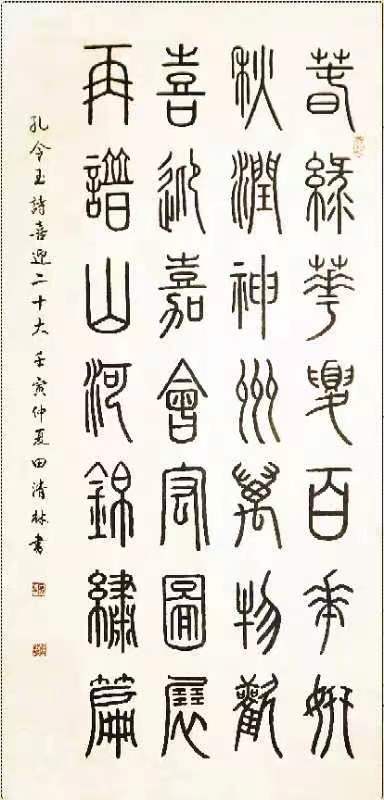 春綠華夏百花妍
秋潤神州萬物歡
喜迎嘉會宏圖展
再譜山河錦繡篇
孔令玉詩喜迎二十大壬寅仲夏田清林書